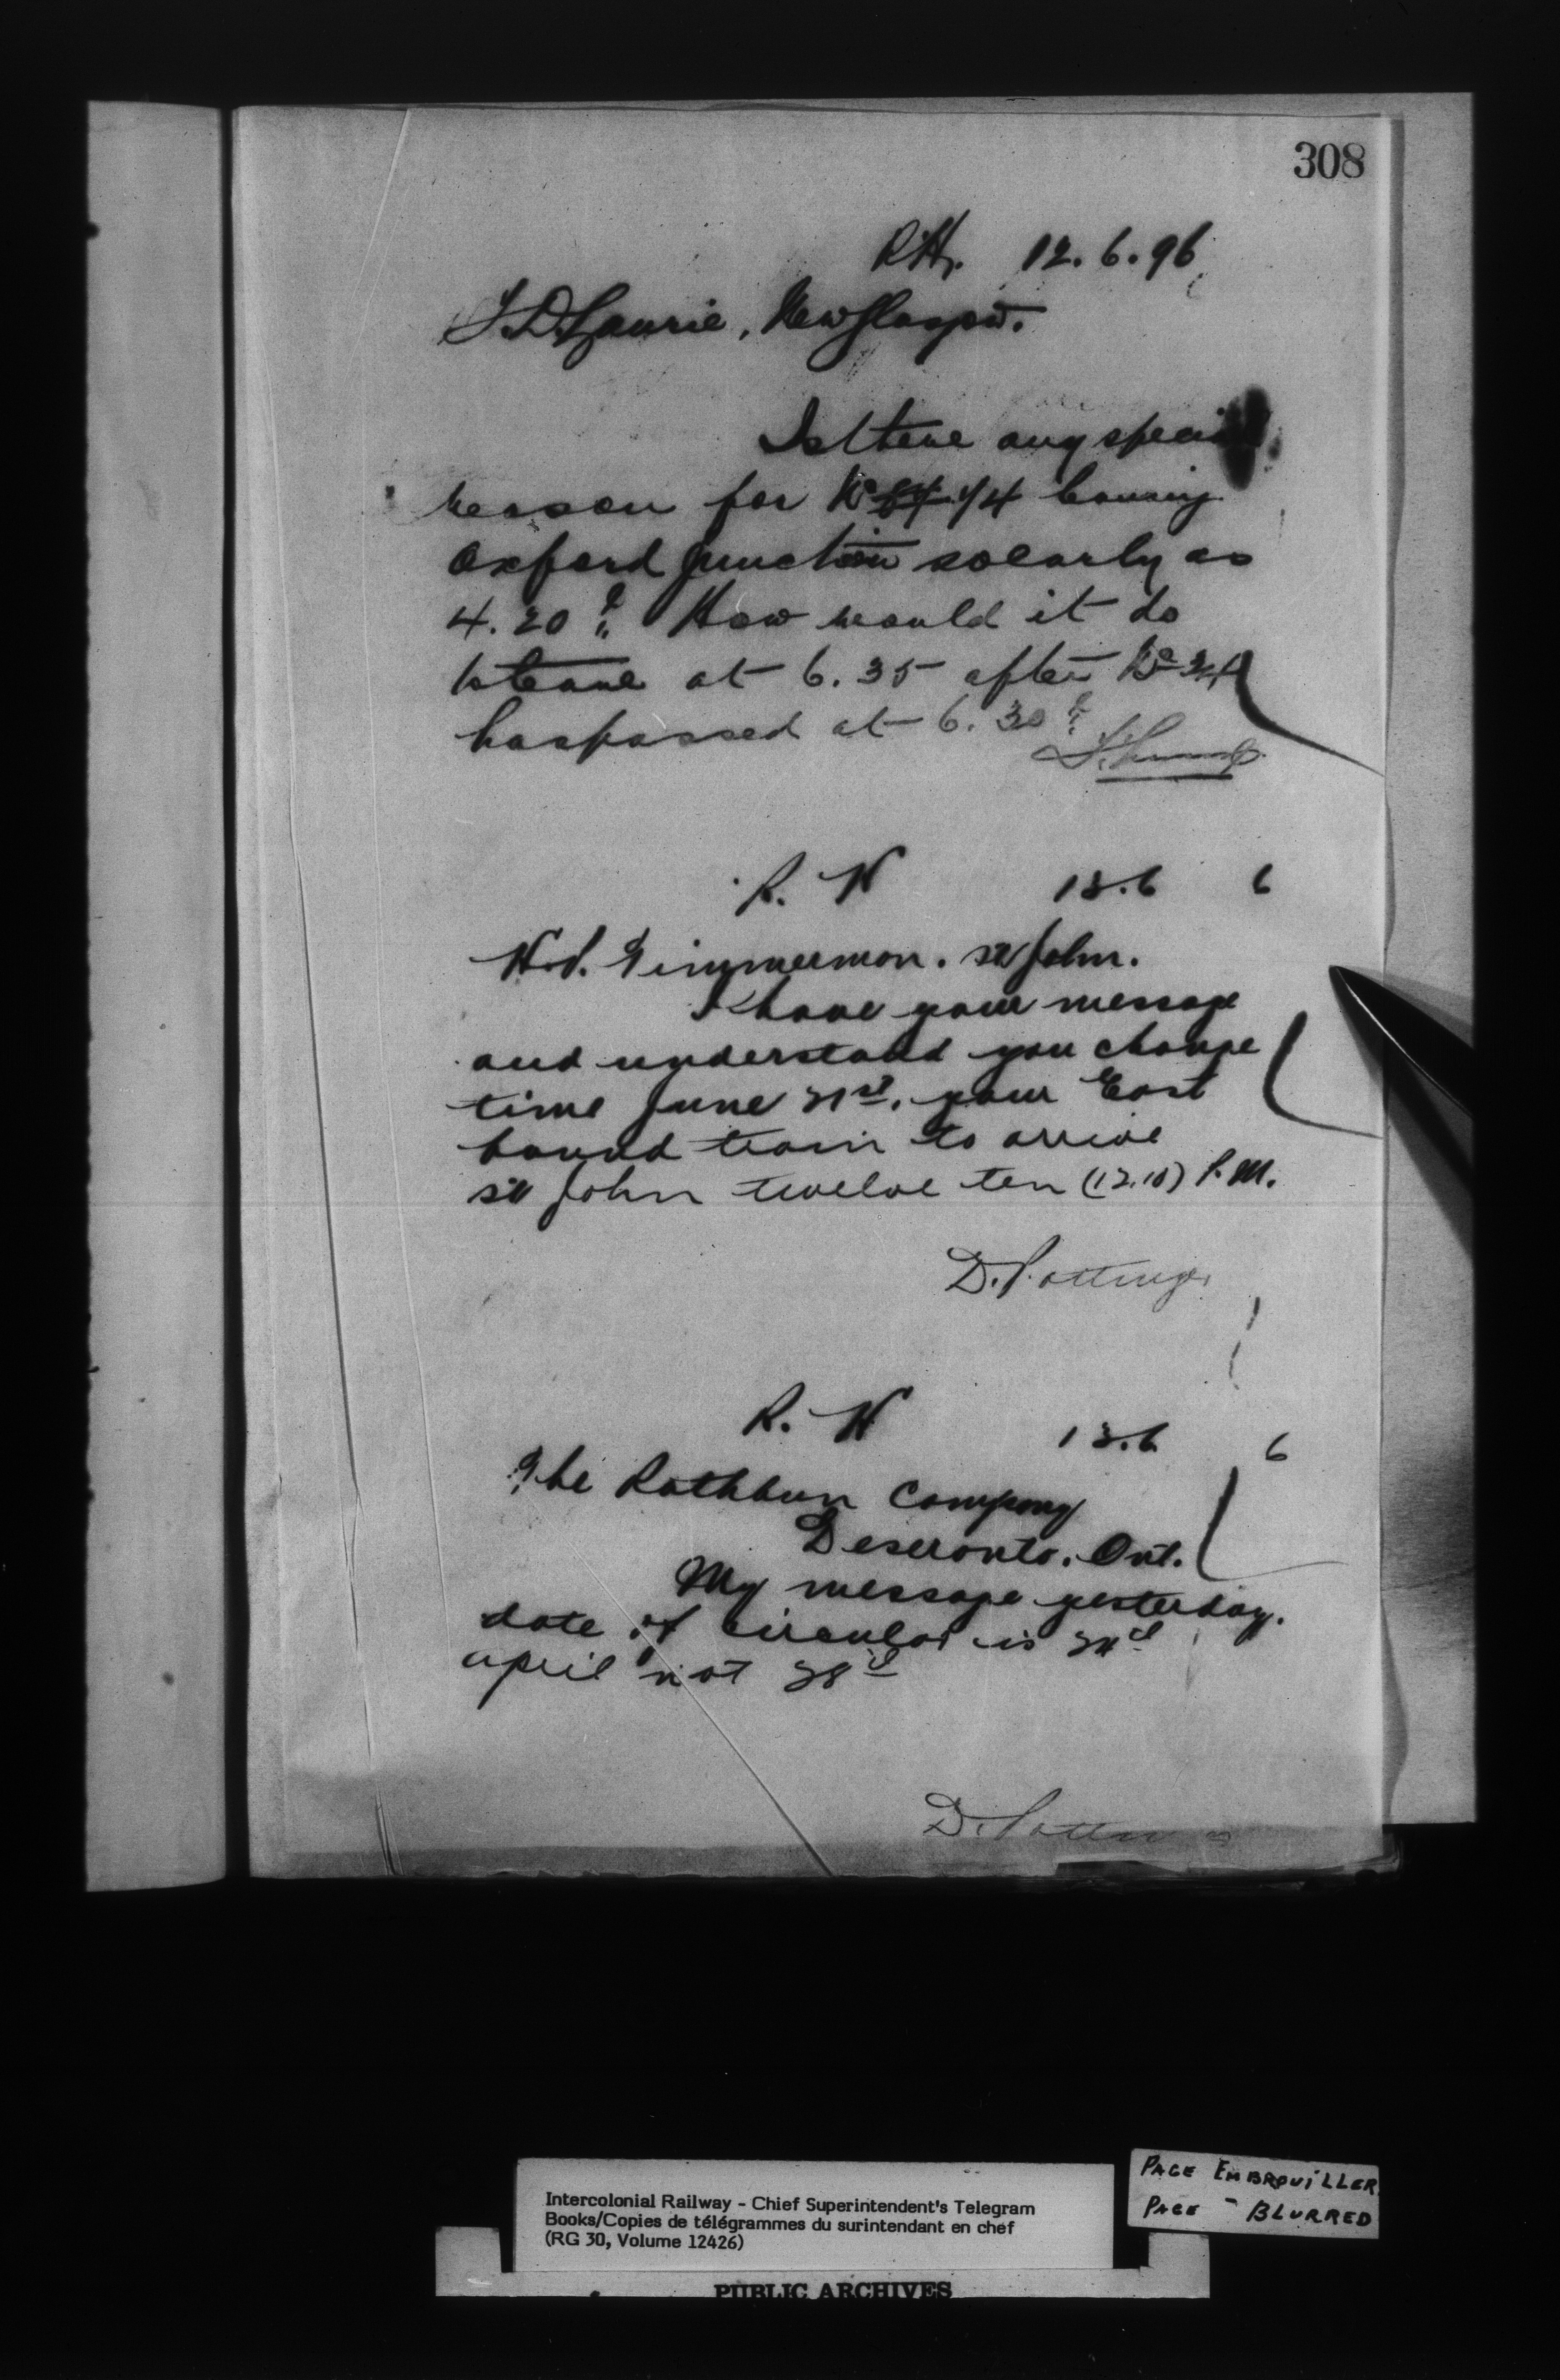 308
R.H. 12.6.96
T.D. Laurie, New Glasgow.
Is there any special
reason for No 84 74 leaving
Oxford Junction so early as
4.20? How would it do
to leave at 6.35 after No 34
has passed at 6.30?
R. H 13.6 6
H.P. Timmerman. St John.
I have your message
and understand you change
time June 21st. your East
bound train to arrive
St John twelve ten (12.10) P.M.
D. Pottinger
R. H 13.6 6
The Rathbun Company
Deseronto. Ont.
My message yesterday.
date of circular is
April not 28th
D. Pottinger
Intercolonial Railway - Chief Superintendent's Telegram
Books/Copies de télégrammes du surintendant en chef
(RG 30, Volume 12426)
PAGE EMBROUILLER
PAGE - BLURRED
PUBLIC ARCHIVES